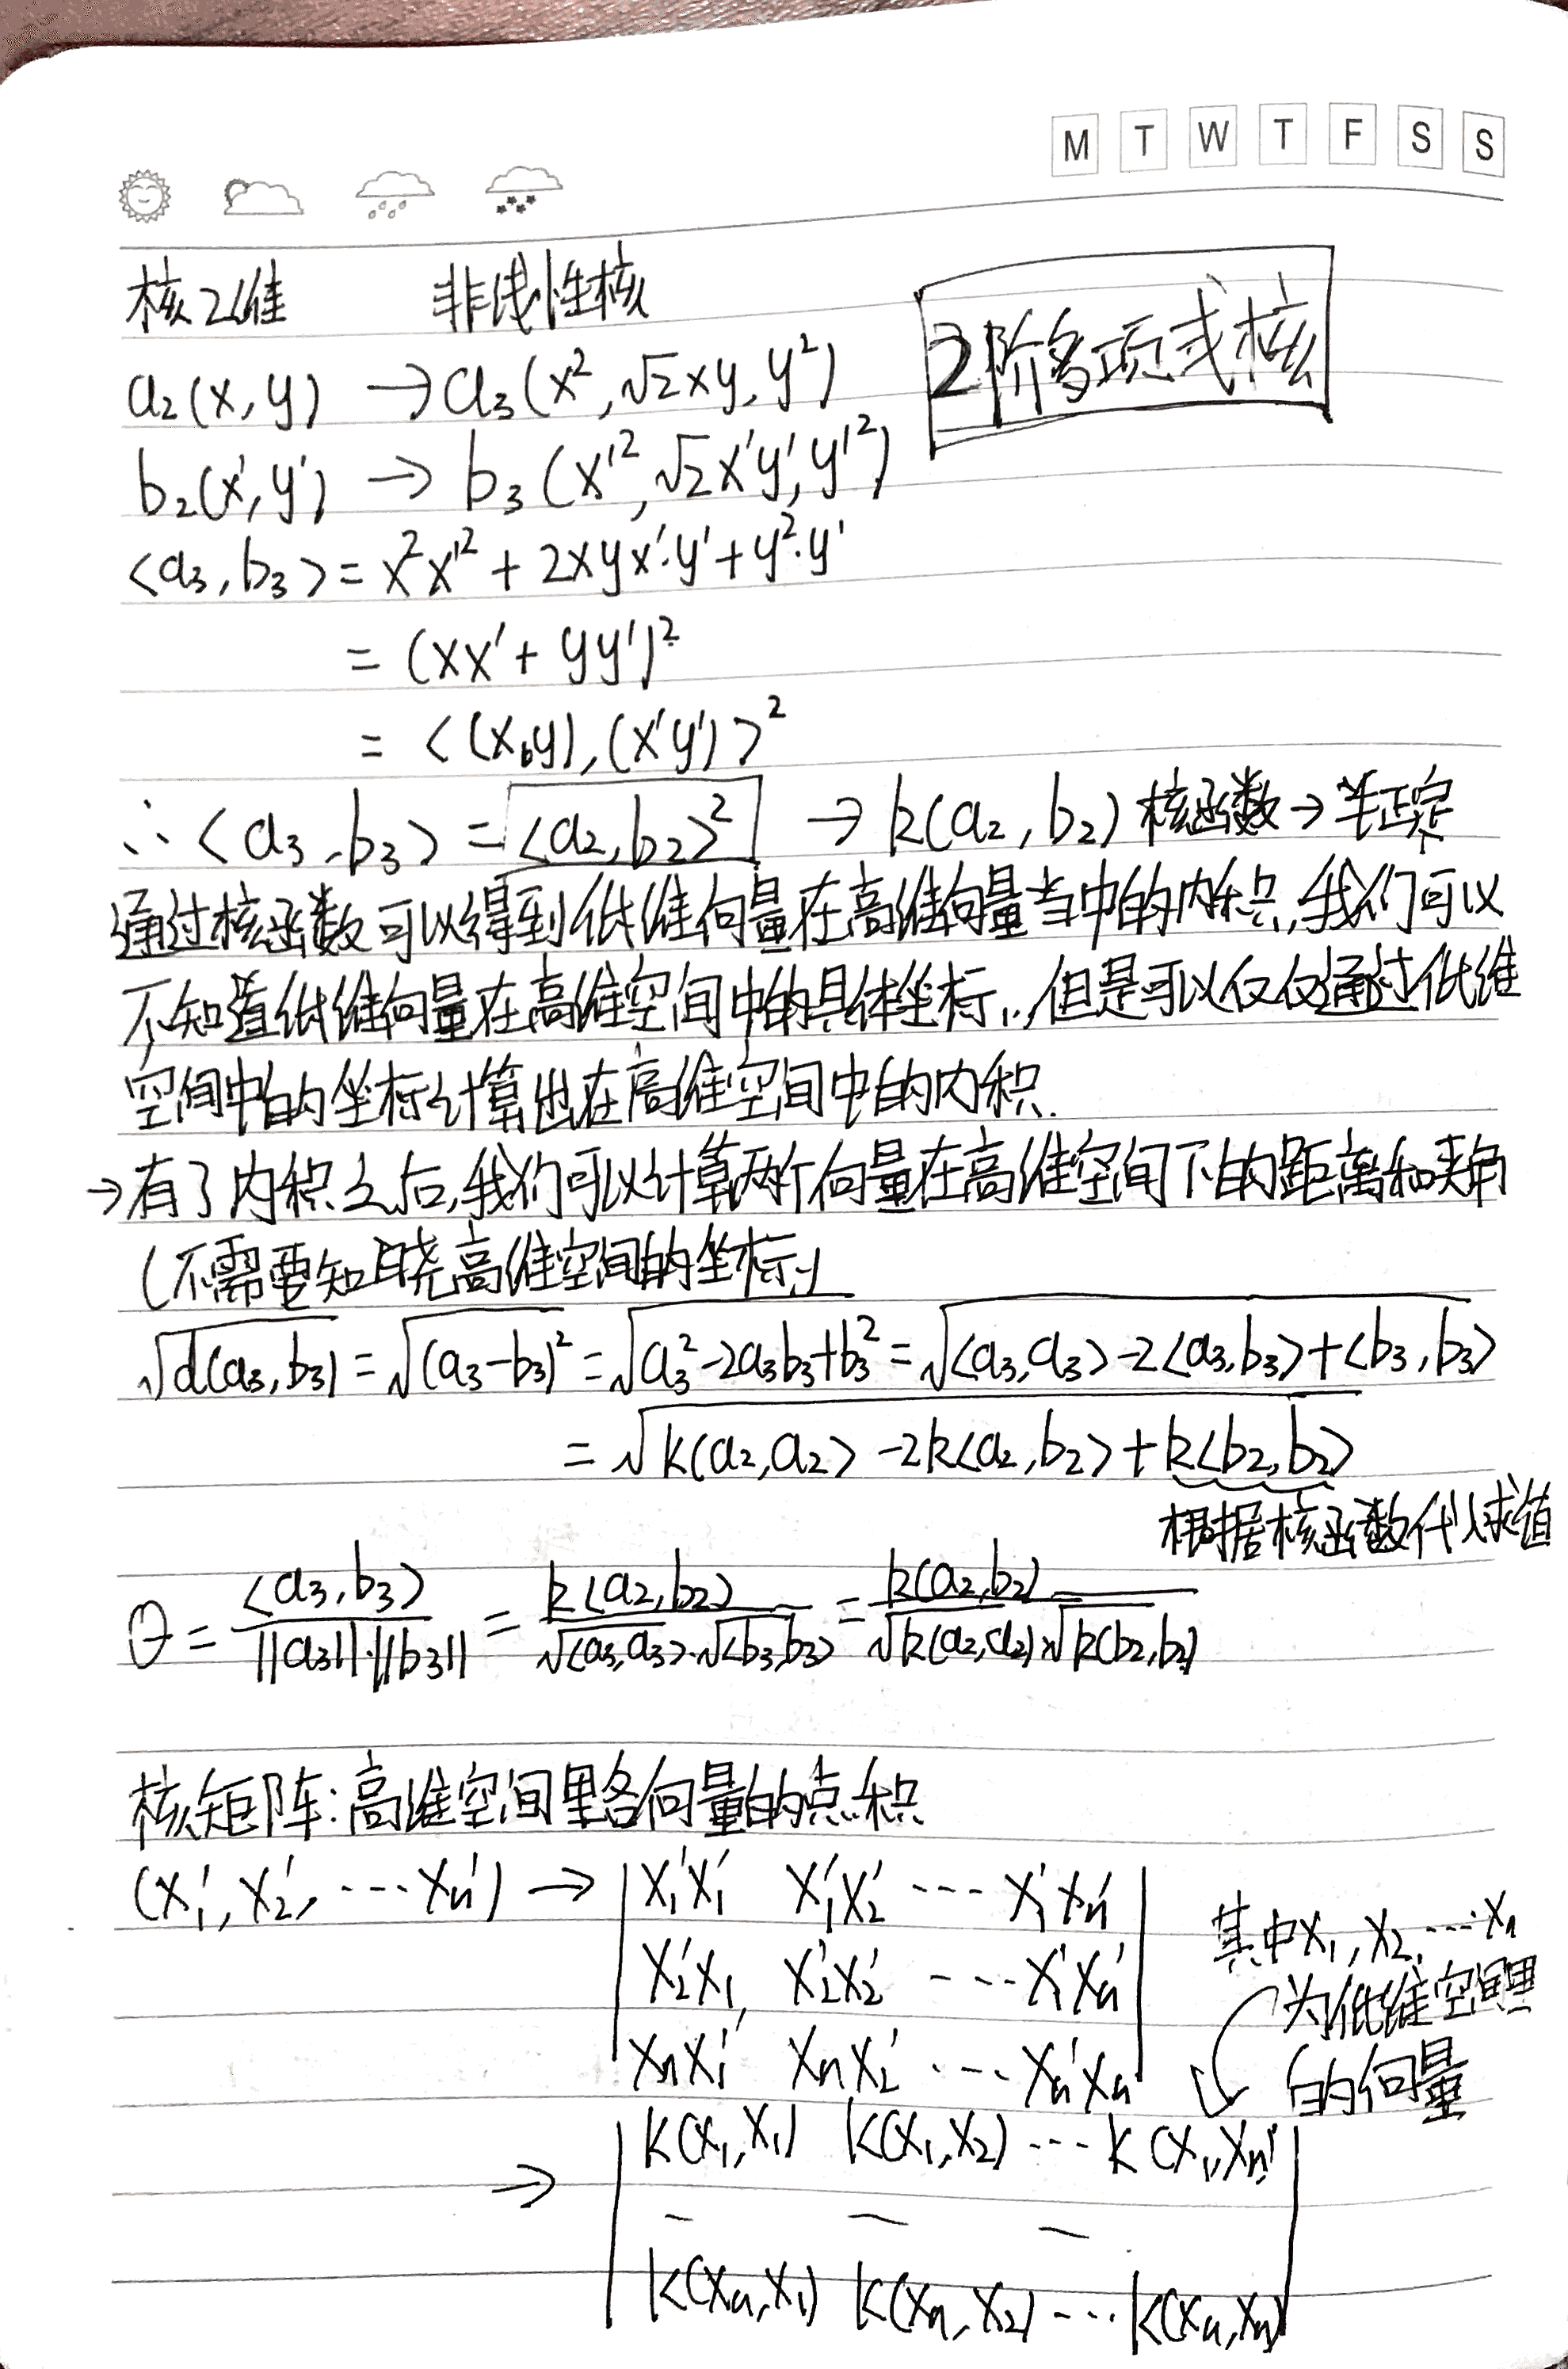 M T W T F S S
核2维 非线性核
2阶多项式核
a₂(x,y) → a₃(x², √2xy, y²)
b₂(x',y') → b₃(x'², √2x'y', y'²)
<a₃,b₃> = x²x'² + 2xyx'·y' + y²·y'
= (xx' + yy')²
= <(x,y),(x'y')>²
∴ <a₃,b₃> = <a₂,b₂>² → k(a₂,b₂) 核函数 → 半正定
通过核函数可以得到低维向量在高维向量当中的内积,我们可以
不知道低维向量在高维空间中的具体坐标,但是可以仅仅通过低维
空间中的坐标计算出在高维空间中的内积.
→有了内积之后,我们可以计算两个向量在高维空间下的距离和夹角
(不需要知晓高维空间的坐标)
√d(a₃,b₃) = √(a₃-b₃)² = √a₃²-2a₃b₃+b₃² = √<a₃,a₃>-2<a₃,b₃>+<b₃,b₃>
= √k(a₂,a₂>-2k<a₂,b₂>+k<b₂,b₂>
根据核函数代入求值
θ = <a₃,b₃>/||a₃||·||b₃|| = k<a₂,b₂>/√<a₃,a₃>·√<b₃,b₃> = k(a₂,b₂)/√k(a₂,a₂)·√k(b₂,b₂)
核矩阵:高维空间里各向量的点积
(x₁', x₂', ⋯ xₙ') → | x₁'x₁' x₁'x₂' ⋯ x₁'xₙ' |
| x₂'x₁' x₂'x₂' ⋯ x₁'xₙ' |
| xₙx₁' xₙx₂' ⋯ xₙ'xₙ' |
其中x₁, x₂, ⋯ xₙ
为低维空间里
的向量
→ | k(x₁,x₁) k(x₁,x₂) ⋯ k(x₁,xₙ) |
| k(xₙ,x₁) k(xₙ,x₂) ⋯ k(xₙ,xₙ) |